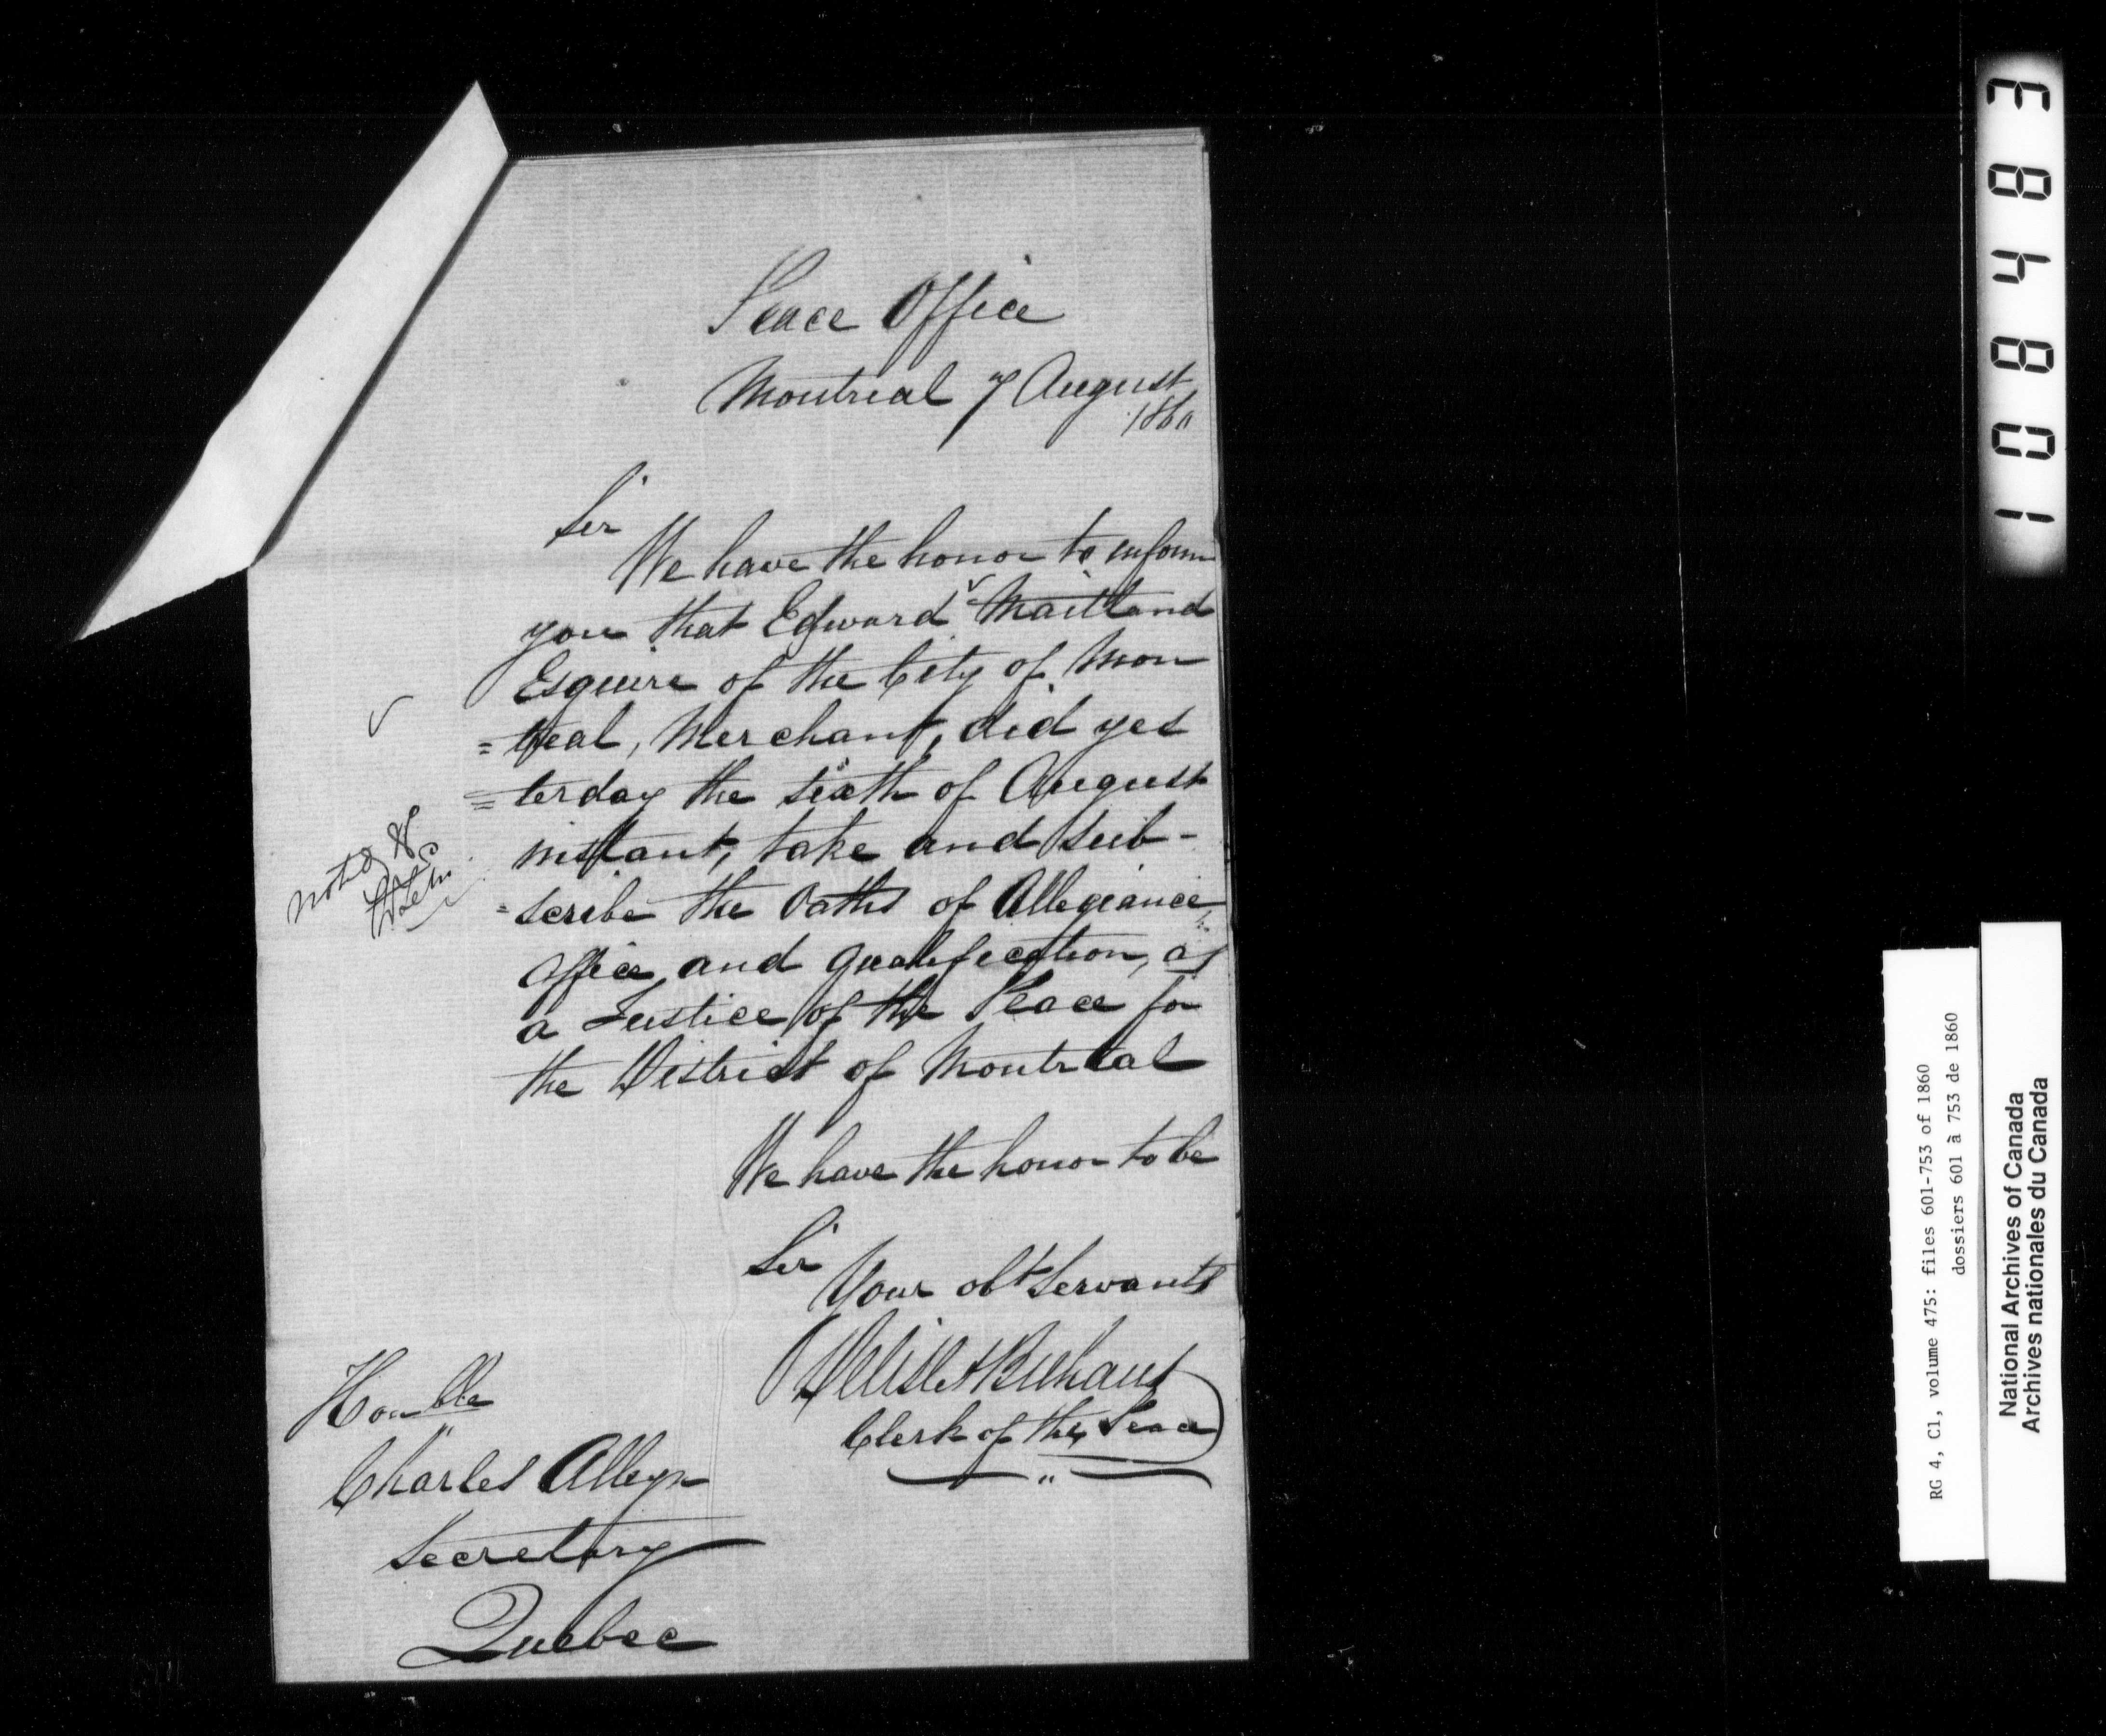 Peace Office
Montreal 7 August
1860
Sir
We have the honor to inform
you that Edward Maitland
Esquire of the City of Mon
=treal, Merchant, did yes
=terday the sixth of August
instant, take and sub-
-scribe the Oaths of Allegiance,
office, and qualification, as
a Justice of the Peace for
the District of Montreal
We have the honor to be
Sir
Your obt Servants
Delisle & Brehaut
Clerk of the Peace
Honble
Charles Alleyn
Secretary
Quebec
noted
108483
RG 4, C1, volume 475: files 601-753 of 1860
dossiers 601 à 753 de 1860
National Archives of Canada
Archives nationales du Canada